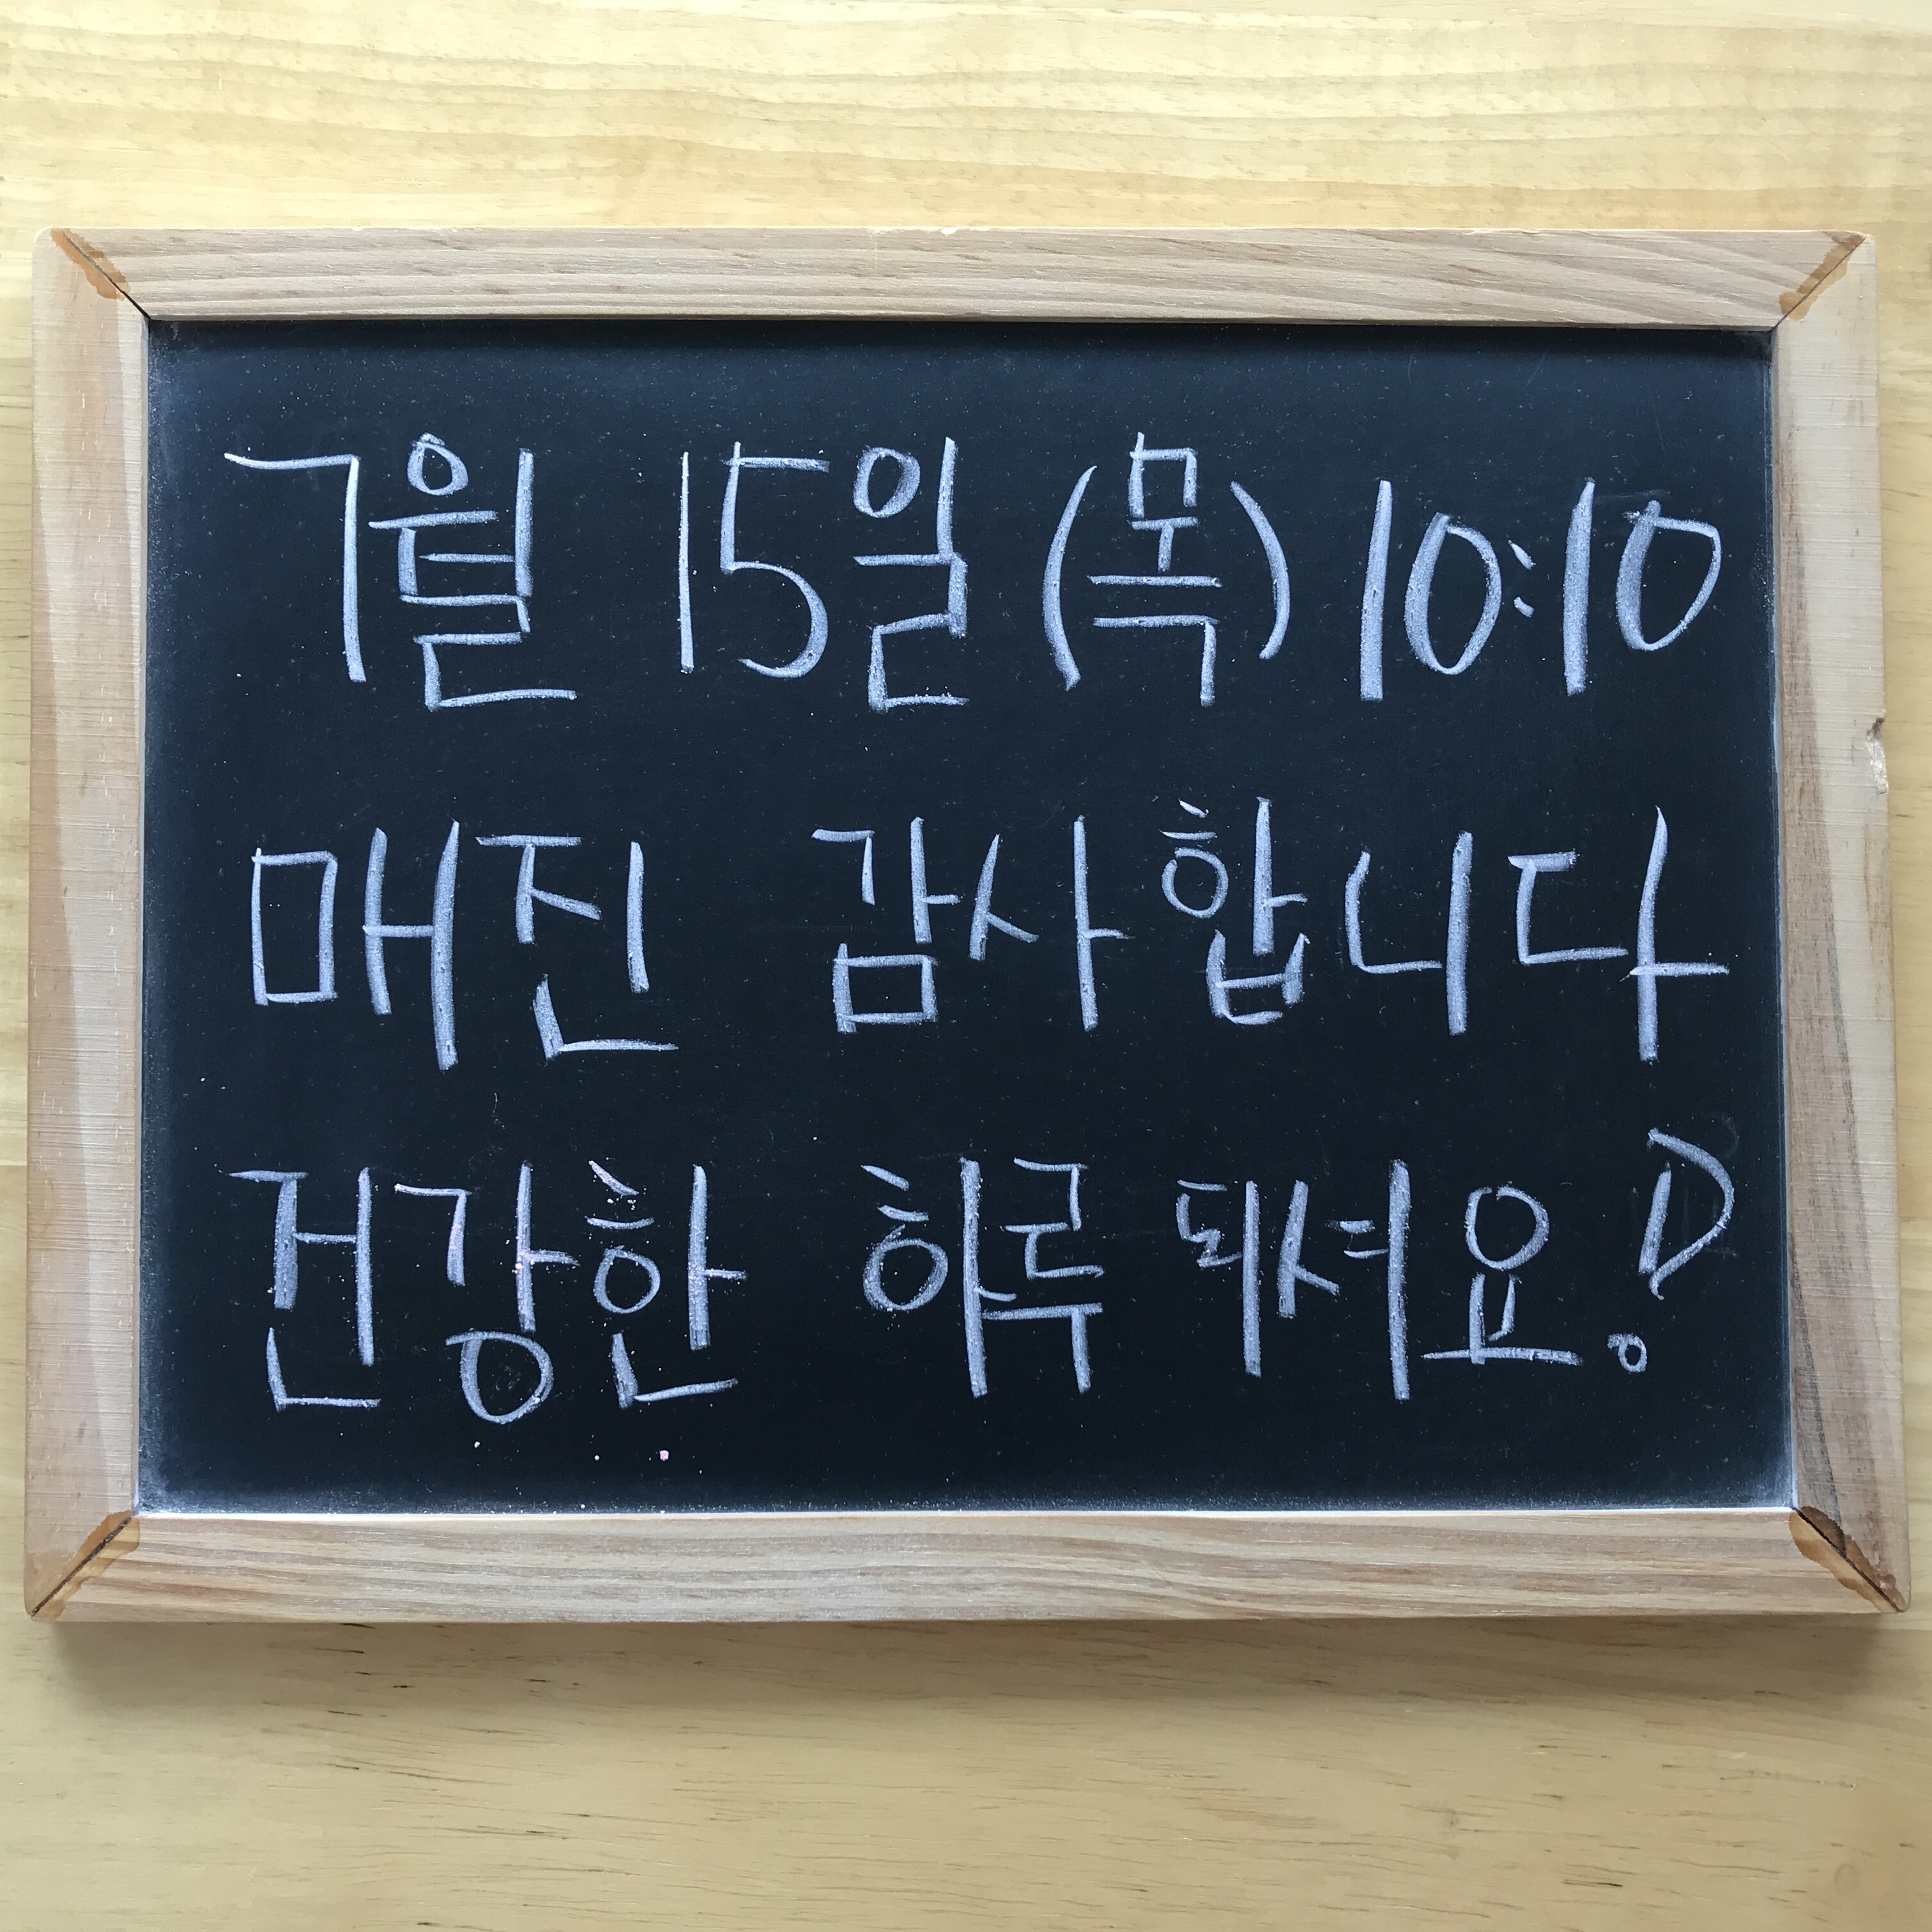 7월 15일 (목) 10:10
매진 감사합니다
건강한 하루 되셔요!